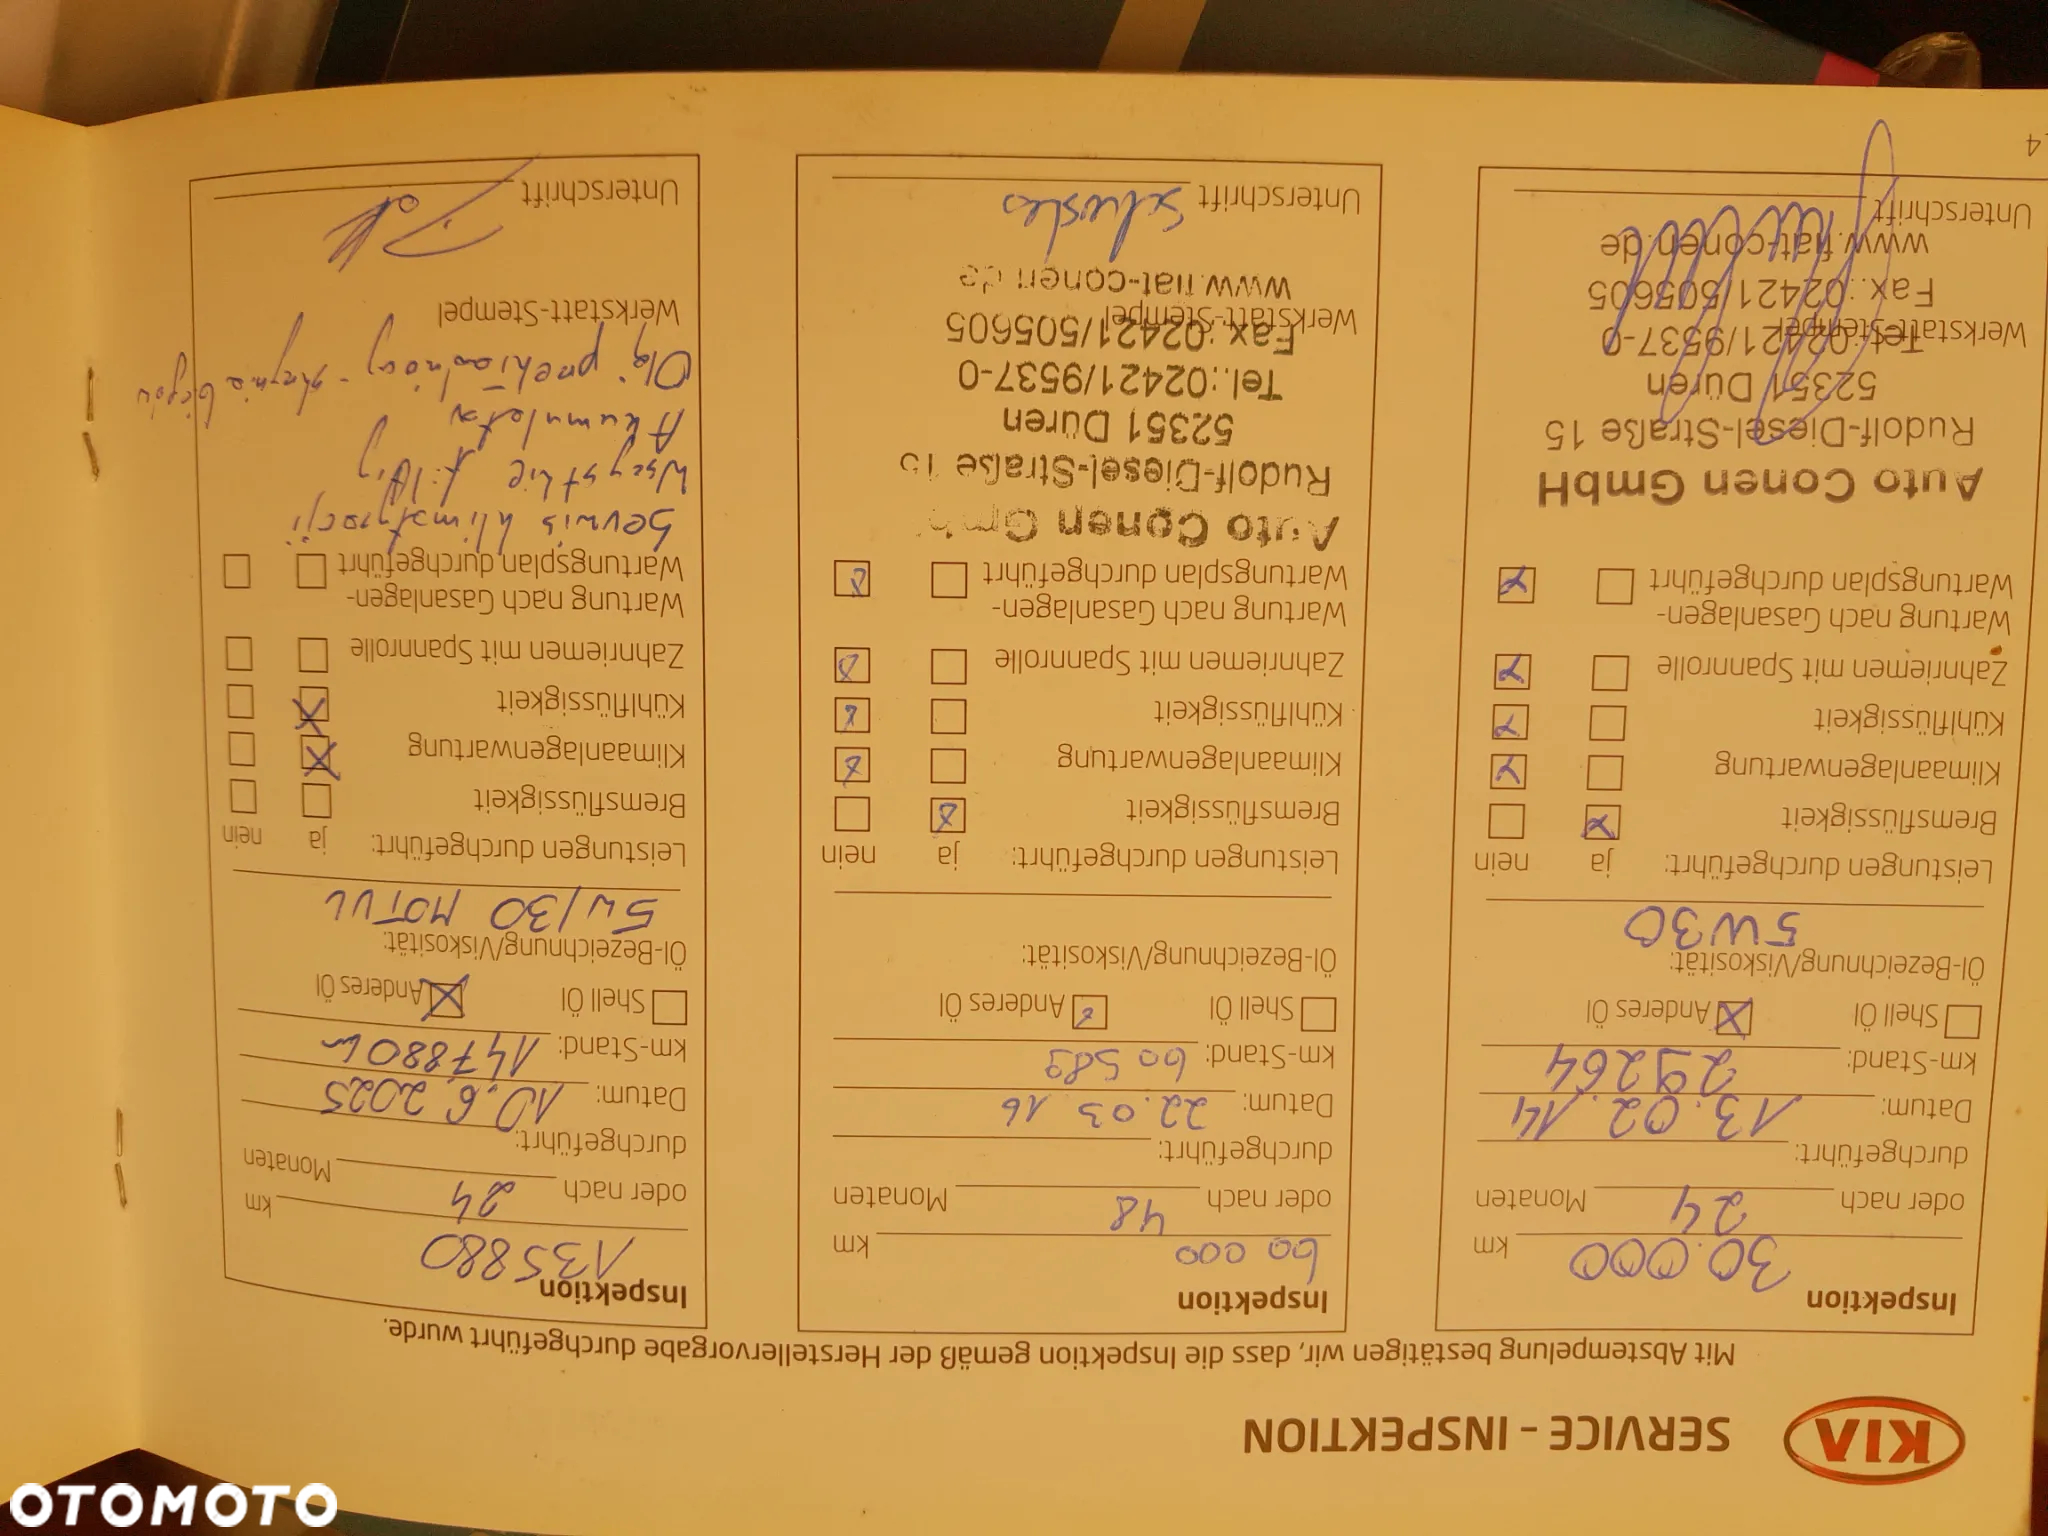 KIA SERVICE - INSPEKTION
Mit Abstempelung bestätigen wir, dass die Inspektion gemäß der Herstellervorgabe durchgeführt wurde.
Inspektion
30.000 km
oder nach 24 Monaten
durchgeführt:
Datum: 13.02.14
km-Stand: 29264
Shell Öl Anderes Öl
Öl-Bezeichnung/Viskosität:
5W30
Leistungen durchgeführt: ja nein
Bremsflüssigkeit
Klimaanlagenwartung
Kühlflüssigkeit
Zahnriemen mit Spannrolle
Wartung nach Gasanlagen-
Wartungsplan durchgeführt
Auto Conen GmbH
Rudolf-Diesel-Straße 15
52351 Düren
Tel.:02421/9537-0
Werkstatt-Stempel
Fax.:02421/505605
www.fiat-conen.de
Unterschrift
14
Inspektion
60 000 km
oder nach 48 Monaten
durchgeführt:
Datum: 22.03 16
km-Stand: 60 589
Shell Öl Anderes Öl
Öl-Bezeichnung/Viskosität:
Leistungen durchgeführt: ja nein
Bremsflüssigkeit
Klimaanlagenwartung
Kühlflüssigkeit
Zahnriemen mit Spannrolle
Wartung nach Gasanlagen-
Wartungsplan durchgeführt
Auto Conen GmbH
Rudolf-Diesel-Straße 15
52351 Düren
Tel.:02421/9537-0
Fax.:02421/505605
Werkstatt-Stempel
www.fiat-conen.de
Unterschrift
Inspektion
135880
km
oder nach 24 Monaten
durchgeführt:
Datum: 10.6.2025
km-Stand: 147880 km
Shell Öl Anderes Öl
Öl-Bezeichnung/Viskosität:
5W/30 MOTUL
Leistungen durchgeführt: ja nein
Bremsflüssigkeit
Klimaanlagenwartung
Kühlflüssigkeit
Zahnriemen mit Spannrolle
Wartung nach Gasanlagen-
Wartungsplan durchgeführt
Serwis klimatyzacji
Wszystkie filtry
Akumulator
Olej przekładniowy - skrzynia biegów
Werkstatt-Stempel
Unterschrift
OTOMOTO